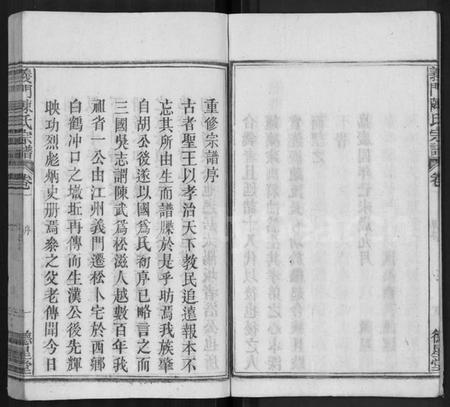 義門陳氏宗譜
卷
德星堂
重修宗譜序
古者聖王以孝治天下教民追遠報本不
忘其所由生而譜牒於是乎昉焉我族肇
自胡公後遂以國為氏初序已略言之而
三國吳志謂陳武為松滋人越數百年我
祖省一公由江州義門遷松卜宅於西鄉
白鶴冲口之墩坵再傳而生漢公後先輝
映功烈彪炳史册焉參之父老傳聞今日
義門陳氏宗譜
卷
序
一
德星堂